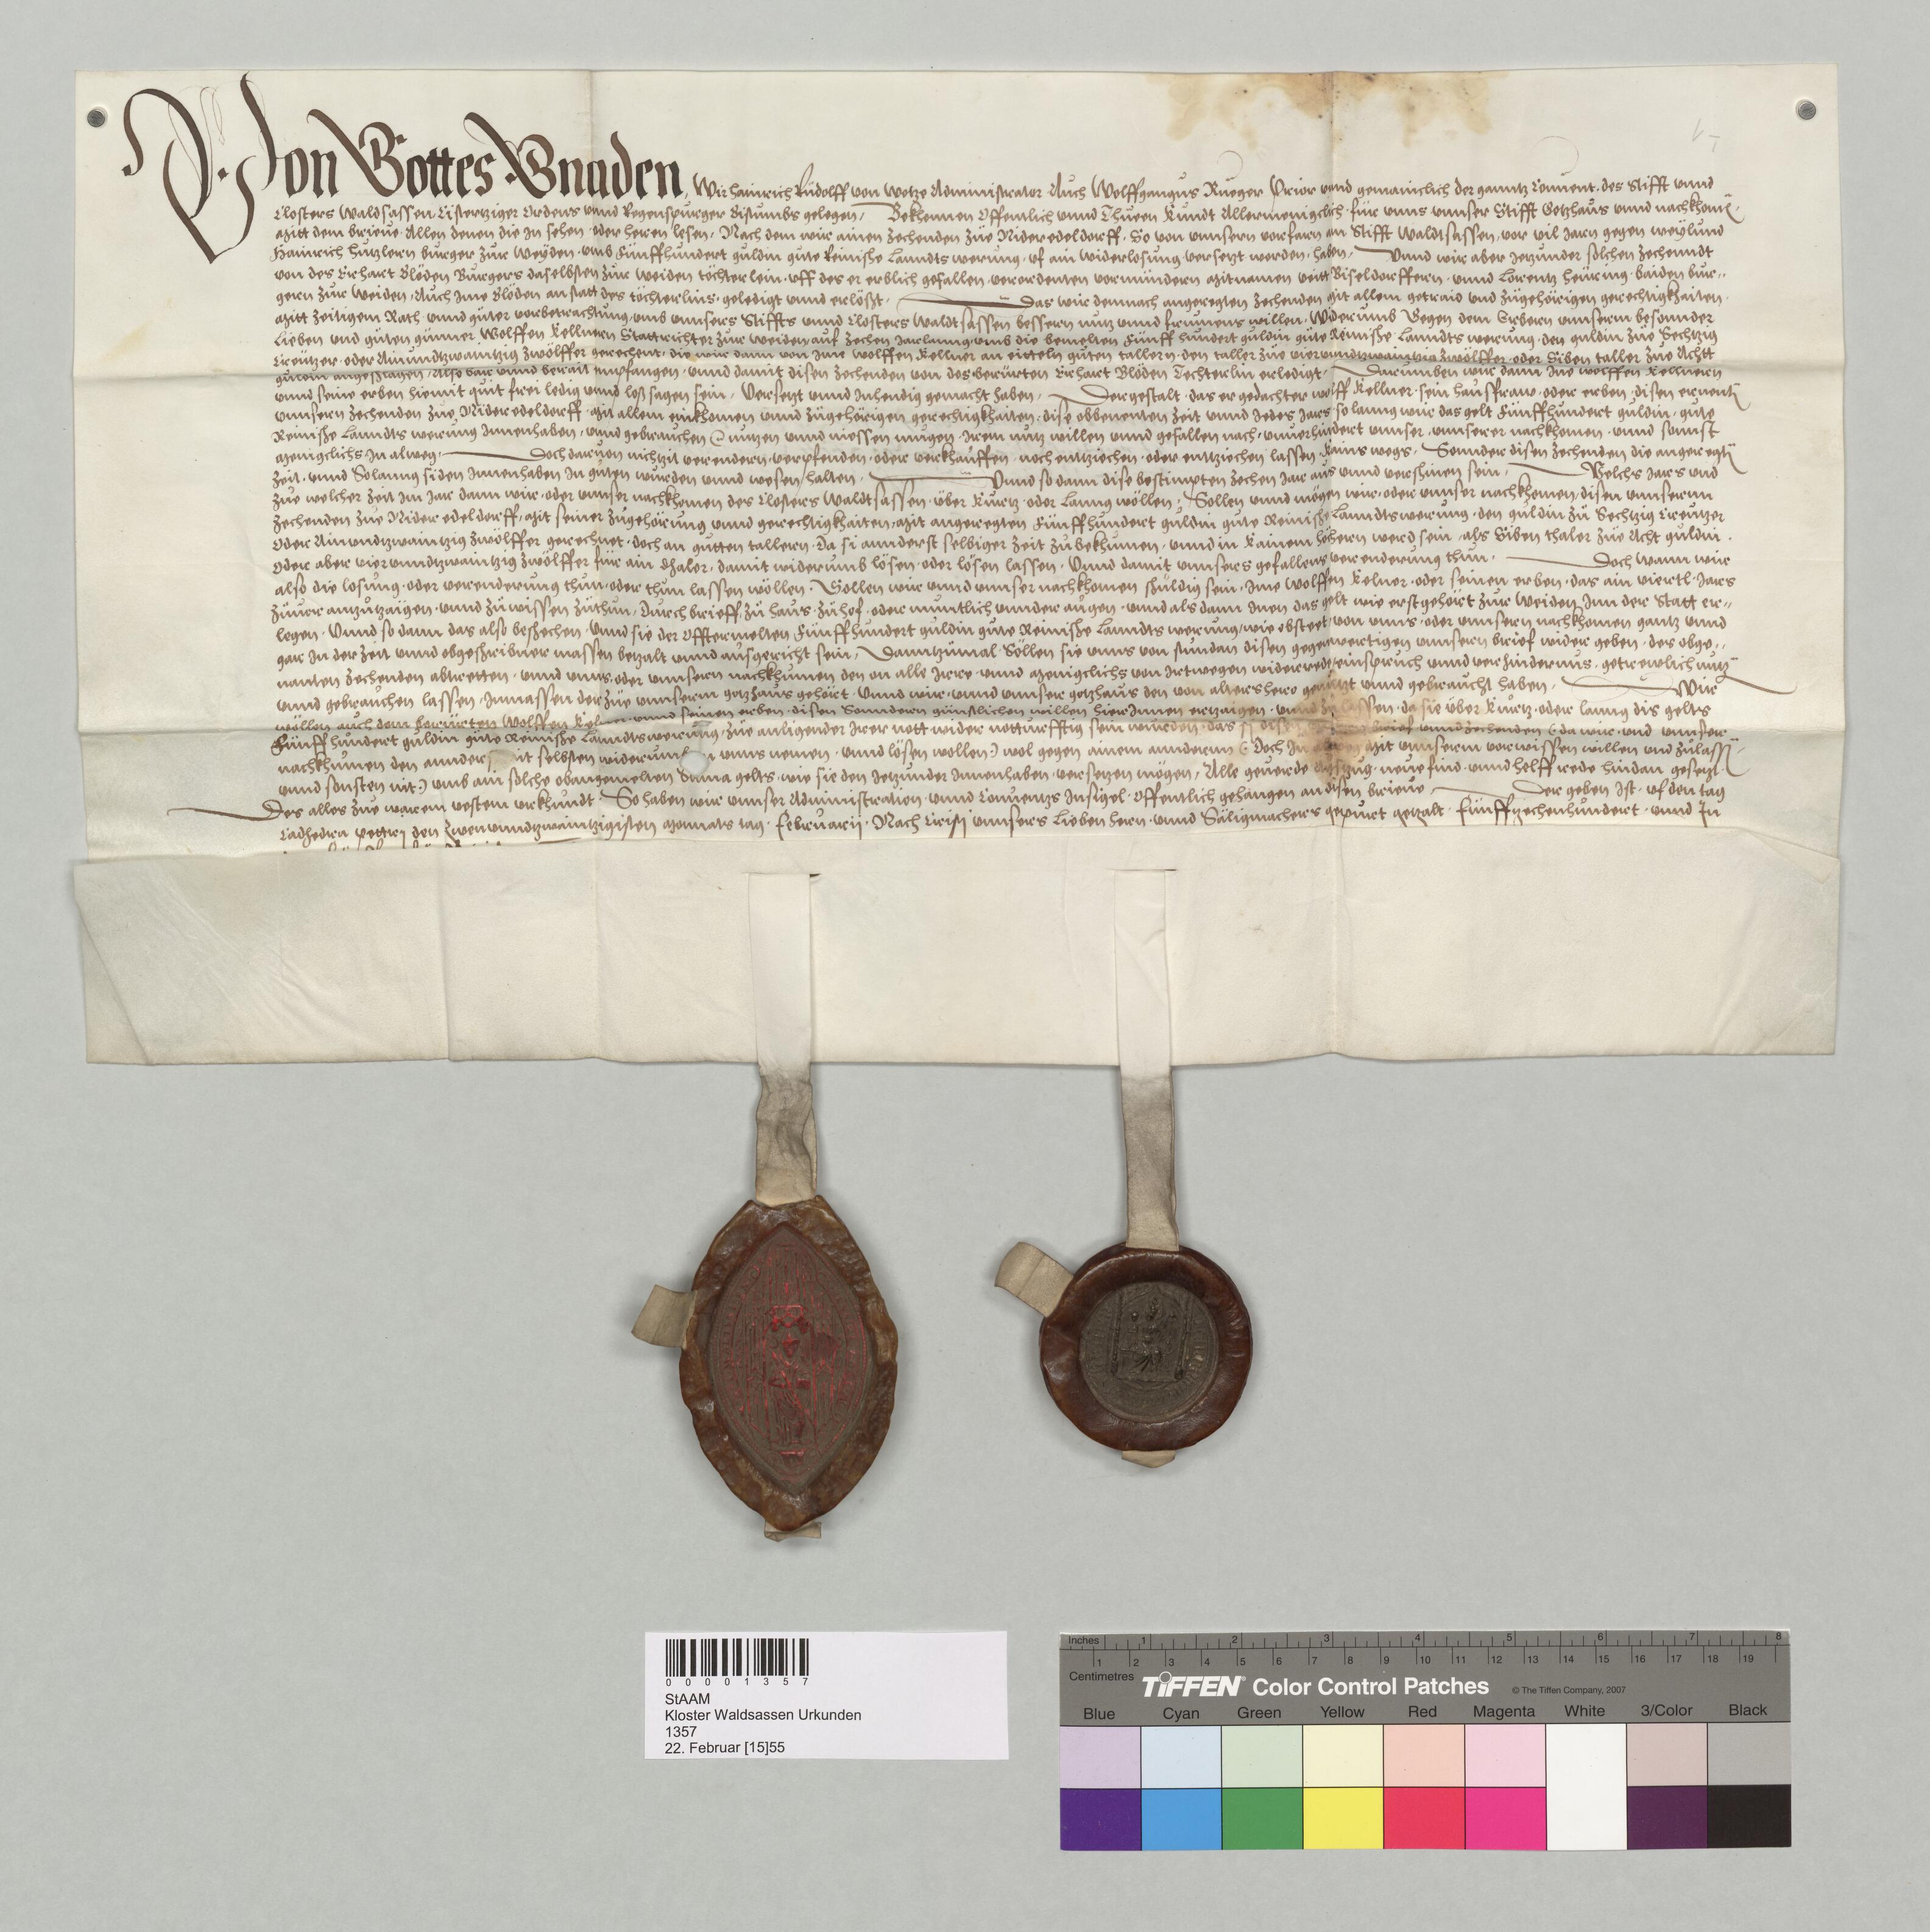 Von Gottes Gnaden, Wir Hainrich Rudolff von Wetze Administrator Auch Wolffgangus Rueger Prior vnnd gemainclich der ganntz Conuent, des Stifft vnnd
Closters Waldsassen, Cistertziger Ordens vnnd Regenspurger Bistumbs gelegen, Bekhennen Offentlich vnnd Thuen Kundt Allermenigclich, für vnns vnnser Stifft Gotzhaus vnnd nachkhom̄,
Mitt dem brieue, Allen denen die In sehen, oder heren lesen, Nach dem wir ainen Zechenden zue Nideredeldorff, So von vnnsern vorfarn am Stifft Waldtsassen, vor vil Jarn gegen weylund
Hainrich Hutzlern burger zur Weyden, vmb Fünffhundert guldin gute Reinishe Lanndts werung, vf ain widerlosung versetzt worden, haben, Vnnd wir aber Jetzunder solchen Zechenndt
von des Erhart Blöden Burgers daselbsten zur Weiden töchterlein, vff des er erblich gefallen, verordenten vormündern Mitnamen veitt Biseldorffern, vnnd Lorentz Heuring, baiden bur,,
gern zur Weiden, Auch Ime Blöden an statt des töchterlins, geledigt vnnd erlößt, Das wir demnach angeregten Zechenden Mit allem getraid vnd zugehörigen gerechtigkhaiten,
Mitt zeitigem Rath vnnd guter vorbetrachtung, vmb vnnsers Stiffts vnnd Closters Waldtsassen bessern nutz vnnd frumens willen, Widerumb Gegen dem Erbern vnnserm besonnder
Lieben vnd guten günner Wolffen Kellnern Stattrichter zur Weiden, auf Zechen Jarlanng, vmb die bemelten Fünff hundert guldin gute Reinishe Lanndts werung, den guldin zue Sechtzig
Creutzer, oder Ainundtzwantzig zwölffer gerechent, die wir dann von Ime Wolffen Kellner an eitteln guten tallern, den taller zue viervndtzwaintzig zwölffer, oder Siben taller zue Achtt
guldin angeshlagen, Also bar vnnd berait empfangen, vnnd damit disen Zechenden von des berürten Erhart Blöden Techterlin erledigt, Darumben wir dann Ine Wolffen Kellnern
vnnd seine erben hiemit quit frei ledig vnnd loß sagen sein, Versetzt vnnd Inhendig gemacht haben, Dergestalt, das er gedachter Wolff Kellner, sein haußfraw, oder erben, disen ernent̄
vnnsern Zechenden zue Nideredeldorff, Mit allem einkhomen vnnd zugehörigen gerechtigkhaiten, dise obbenenten zeit vnnd Jedes Jars so lanng wir das gelt Fünffhundert guldin, gute
Reinishe Lanndts werung Innenhaben, vnnd gebrauchen nutzen vnnd niessen mugen, Irem nutz willen vnnd gefallen nach, vnuerhindert vnnser, vnnserer nachkhomen, vnnd sonnst
Menigclichs In alweg, Doch daruon nichtzit verendern, verpfenden, oder verkhauffen, noch entziechen, oder entziechen lassen, Kains wegs, Sonnder disen Zechenden die angeregt̄
Zeit, vnnd Solanng si den Innenhaben In guten wurden vnnd wesen halten, Vnnd so dann dise bestimpten Zechen Jar aus vnnd vershinen sein, Welchs Jars vnd
zue welcher Zeit Im Jar dann wir, oder vnnser nachkhomen des Closters Waldtsassen, über kurtz, oder Lanng wöllen, Sollen vnnd mögen wir, oder vnnser nachkhomen, disen vnnsernn
Zechenden zue Nider edeldorff, Mit seiner zugehörung vnnd gerechtigkhaiten, Mit angeregten Fünffhundert guldin gute Reinishe Lanndtswerung, den guldin zu Sechtzig Creutzer
Oder Ainvndtzwaintzig Zwölffer gerechnet, doch an gutten tallern, Da si annderst selbiger zeit zubekhumen, vnnd in kainem höhern werd sein, als Siben thaler zue Acht guldin,
Oder aber viervnndtzwaintzig Zwölffer für ain thaler, damit widerumb lösen, oder lösen lassen, Vnnd damit vnnsers gefallens verenderung thun, Doch wann wir
also die losung, oder verenderung thun, oder thun lassen wöllen, Sollen wir vnnd vnnser nachkhomen shuldig sein, Ime Wolffen Kelner, oder seinen erben, das ain viertl Jars
zuuor antzutzaigen, vnnd zuwissen zuthun, durch brieff, zu haus, zuhof, oder muntlich vnnder augen, vnnd als dann Inen das gelt wie erstgehört zur Weiden Inn der Statt er,,
legen, Vnnd so dann das also beshechen, vnnd sie der Offtermelten Fünffhundert guldin gute Reinishe Lanndts werung, wie obsteet, von vnns, oder vnnsern nachkhomen gantz vnnd
gar In der zeit vnnd obgeshribner massen betzalt vnnd ausgericht sein, Danntzumal, Söllen sie vnns von stundan disen gegenwertigen vnnsern brief wider geben, des obge,,
nanten Zechenden abtretten, vnnd vnns, oder vnnsern nachkhumen den on alle Irrr, vnnd Menigclichs von Irtwegen widerrede, einspruch vnnd verhindernus, getrewlich nutz̄
vnnd gebrauchen lassen, Inmassen der zue vnnserm gotzhaus gehört, Vnnd wir, vnnd vnnser gotzhaus den von altershero genützt vnnd gebraucht haben, Wir
wöllen auch dem berürten Wolffen Kelner vnnd seinen erben, disen Sonndern günstlichen willen hierInnen ertzaigen, vnnd zulassen, da sie über kurtz, oder lanng dis gelts
Fünff hundert guldin gute Reinishe Lanndtswerung, zue anligender Irer nott wider notturfftig sein wurden, das si brief vnnd Zechenden da wir, vnd vnnser
nachkhumen den annder selbsten widerumb vnns nemen, vnnd lösen wollen) wol gegen ainem annderm Doch In Mit vnnserm vorwissen willen vnd zulass̄
vnnd sonsten nit) vmb ain solche obangemelten Suma gelts, wie sie den Jetzunder Innenhaben, versetzen mögen, Alle geuerde Auszug, neue fünd, vnnd helff rede hindan gesetzt,
Des alles zue warem vestem vrkhundt, So haben wir vnnser Administration, vnnd Conuents Insigel, Offentlich gehangen an disen brieue, Der geben Ist, vf den tag
Cathedra pettrj den Zwenvnndtzwaintzigisten Monats tag, Februarii, Nach Cristj vnnsers Lieben hern, vnnd Säligmachers gepurt getzalt, Fünffzechenhundert, vnnd In
00001357
StAAM
Kloster Waldsassen Urkunden
1357
22. Februar [15]55
Inches 1 2 3 4 5 6 7 8
1 2 3 4 5 6 7 8 9 10 11 12 13 14 15 16 17 18 19
Centimetres
TIFFEN® Color Control Patches © The Tiffen Company, 2007
Blue Cyan Green Yellow Red Magenta White 3/Color Black